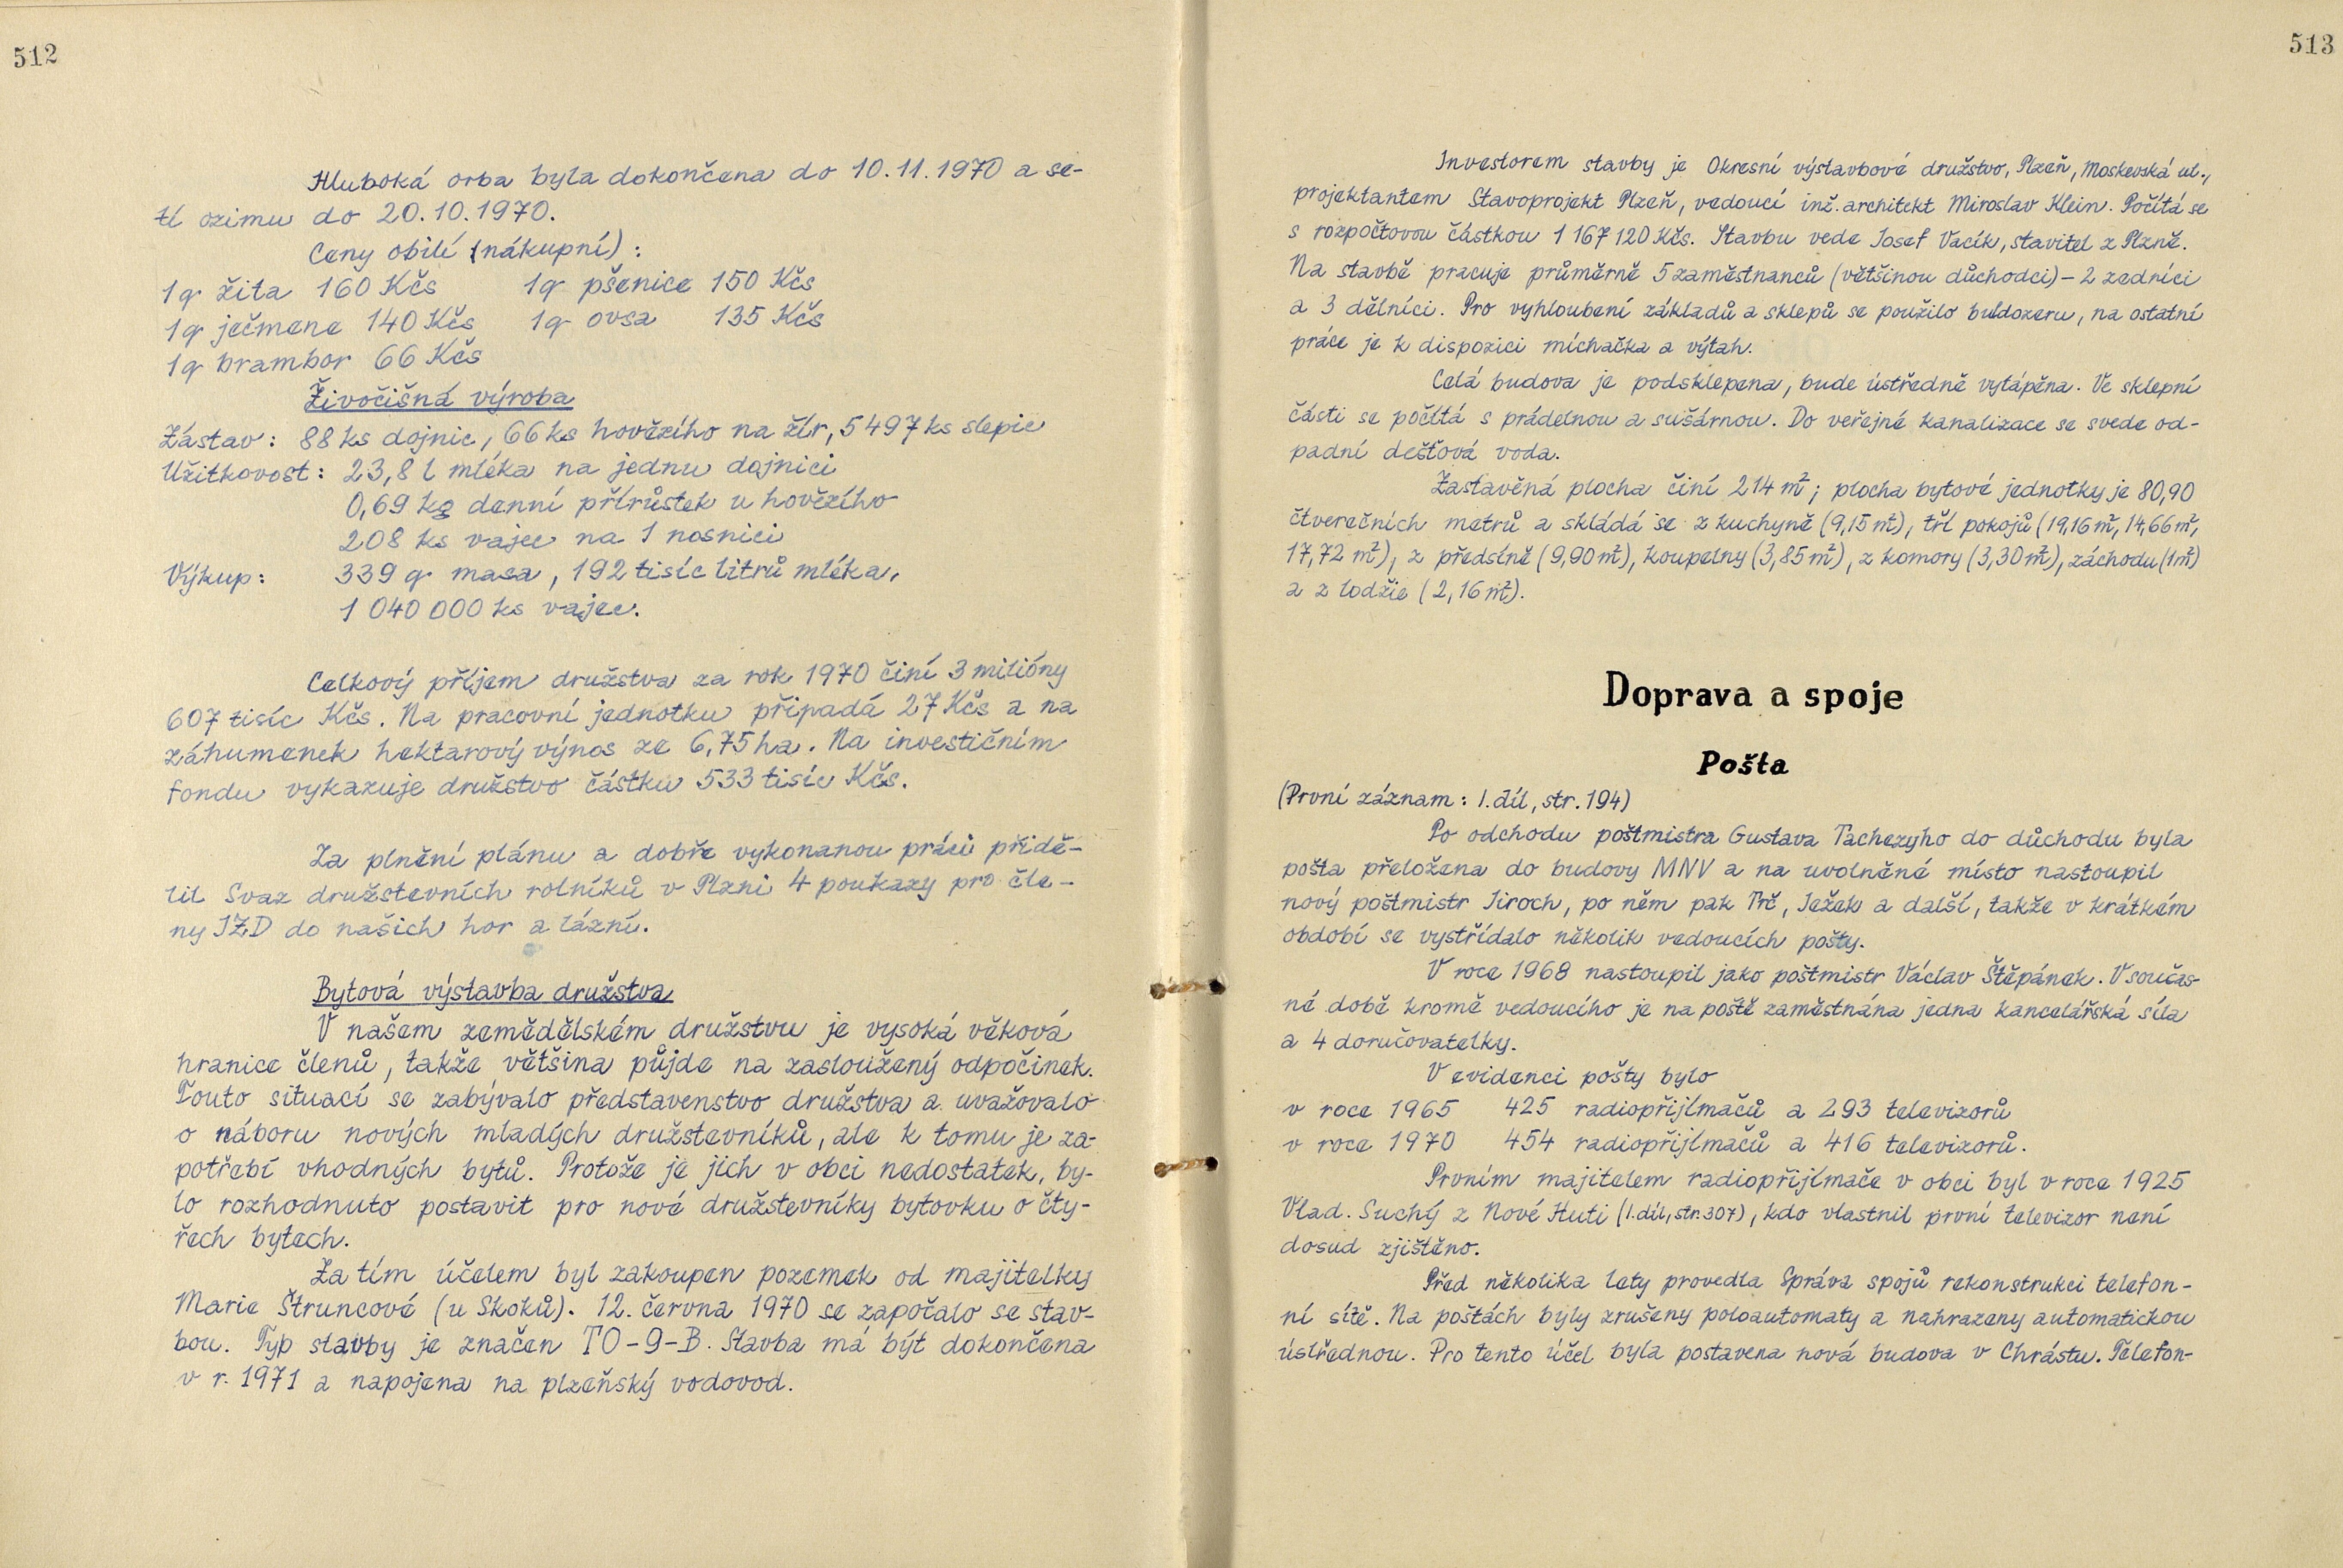 512
Hluboká orba byla dokončena do 10.11.1970 a se-
tí ozimu do 20.10.1970.
Ceny obilí (nákupní):
1q žita 160 Kčs 1q pšenice 150 Kčs
1q ječmene 140 Kčs 1q ovsa 135 Kčs
1q brambor 66 Kčs
Živočišná výroba
Zástav: 88 ks dojnic, 66 ks hovězího na žír, 5497 ks slepic
Užitkovost: 23,8 l mléka na jednu dojnici
0,69 kg denní přírůstek u hovězího
208 ks vajec na 1 nosnici
Výkup: 339 q masa, 192 tisíc litrů mléka,
1 040 000 ks vajec.
Celkový příjem družstva za rok 1970 činí 3 milióny
607 tisíc Kčs. Na pracovní jednotku připadá 27 Kčs a na
záhumenek hektarový výnos ze 6,75 ha. Na investičním
fondu vykazuje družstvo částku 533 tisíc Kčs.
Za plnění plánu a dobře vykonanou práci přidě-
lil Svaz družstevních rolníků v Plzni 4 poukazy pro čle-
ny JZD do našich hor a lázní.
Bytová výstavba družstva
V našem zemědělském družstvu je vysoká věková
hranice členů, takže většina půjde na zasloužený odpočinek.
Touto situací se zabývalo představenstvo družstva a uvažovalo
o náboru nových mladých družstevníků, ale k tomu je za-
potřebí vhodných bytů. Protože je jich v obci nedostatek, by-
lo rozhodnuto postavit pro nové družstevníky bytovku o čty-
řech bytech.
Za tím účelem byl zakoupen pozemek od majitelky
Marie Štruncové (u Skoků). 12. června 1970 se započalo se stav-
bou. Typ stavby je značen TO-9-B. Stavba má být dokončena
v r. 1971 a napojena na plzeňský vodovod.
513
Investorem stavby je Okresní výstavbové družstvo, Plzeň, Moskevská ul.,
projektantem Stavoprojekt Plzeň, vedoucí inž. architekt Miroslav Klein. Počítá se
s rozpočtovou částkou 1 167 120 Kčs. Stavbu vede Josef Vacík, stavitel z Plzně.
Na stavbě pracuje průměrně 5 zaměstnanců (většinou důchodci) – 2 zedníci
a 3 dělníci. Pro vyhloubení základů a sklepů se použilo buldozeru, na ostatní
práce je k dispozici míchačka a výtah.
Celá budova je podsklepena, bude ústředně vytápěna. Ve sklepní
části se počítá s prádelnou a sušárnou. Do veřejné kanalizace se svede od-
padní dešťová voda.
Zastavěná plocha činí 214 m²; plocha bytové jednotky je 80,90
čtverečních metrů a skládá se z kuchyně (9,15 m²), tří pokojů (19,16 m², 14,66 m²,
17,72 m²), z předsíně (9,90 m²), koupelny (3,85 m²), z komory (3,30 m²), záchodu (1 m²)
a z lodžie (2,16 m²).
Doprava a spoje
Pošta
(První záznam: I. díl, str. 194)
Po odchodu poštmistra Gustava Tachezyho do důchodu byla
pošta přeložena do budovy MNV a na uvolněné místo nastoupil
nový poštmistr Jiroch, po něm pak Trč, Ježek a další, takže v krátkém
období se vystřídalo několik vedoucích pošty.
V roce 1968 nastoupil jako poštmistr Václav Štěpánek. V součas-
né době kromě vedoucího je na poště zaměstnána jedna kancelářská síla
a 4 doručovatelky.
V evidenci pošty bylo
v roce 1965 425 radiopřijímačů a 293 televizorů
v roce 1970 454 radiopřijímačů a 416 televizorů.
Prvním majitelem radiopřijímače v obci byl v roce 1925
Vlad. Suchý z Nové Huti (I. díl, str. 307), kdo vlastnil první televizor není
dosud zjištěno.
Před několika lety provedla Správa spojů rekonstrukci telefon-
ní sítě. Na poštách byly zrušeny poloautomaty a nahrazeny automatickou
ústřednou. Pro tento účel byla postavena nová budova v Chrástu. Telefon-